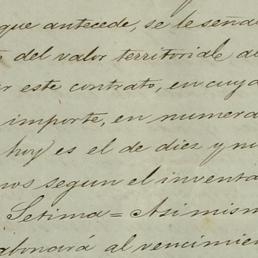 que antecede, se le seña
del valor territorial de
este contrato, en cuya
importe, en numera
hoy es el de diez y nu
nos segun el inventa
Setima = Asimism
abonará al vencimien